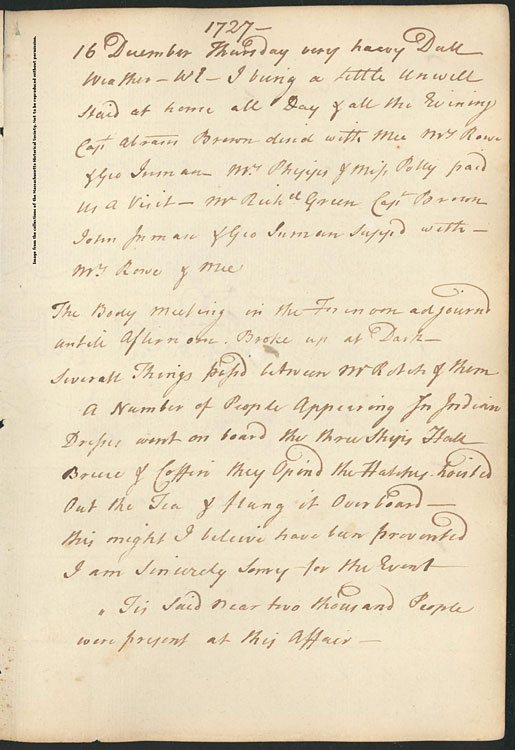 Image from the collections of the Massachusetts Historical Society. Not to be reproduced without permission.
1727—
16 December Thursday very heavy Dull
Weather — WE — I being a little Unwell
staid at home all Day & all the Evening
Capt Abram Brown dined with Mee Mrs Rowe
& Geo Inman — Mrs Phipps & Miss Polly paid
us a Visit — Mr Richd Green Capt Brown
John Inman & Geo Inman Supp'd with —
Mrs Rowe & Mee
The Body meeting in the Forenoon adjournd
untill Afternoon. Broke up at Dark —
Severall Things pass'd between Mr Rotch & them
A Number of People Appearing In Indian
Dresses went on board the three Ships Hall
Bruce & Coffin they Opind the Hatches hoisted
Out the Tea & flung it Overboard —
this might I beleive have been prevented
I am Sincerely Sorry for the Event
„ Tis Said near two thousand People
were present at this Affair —